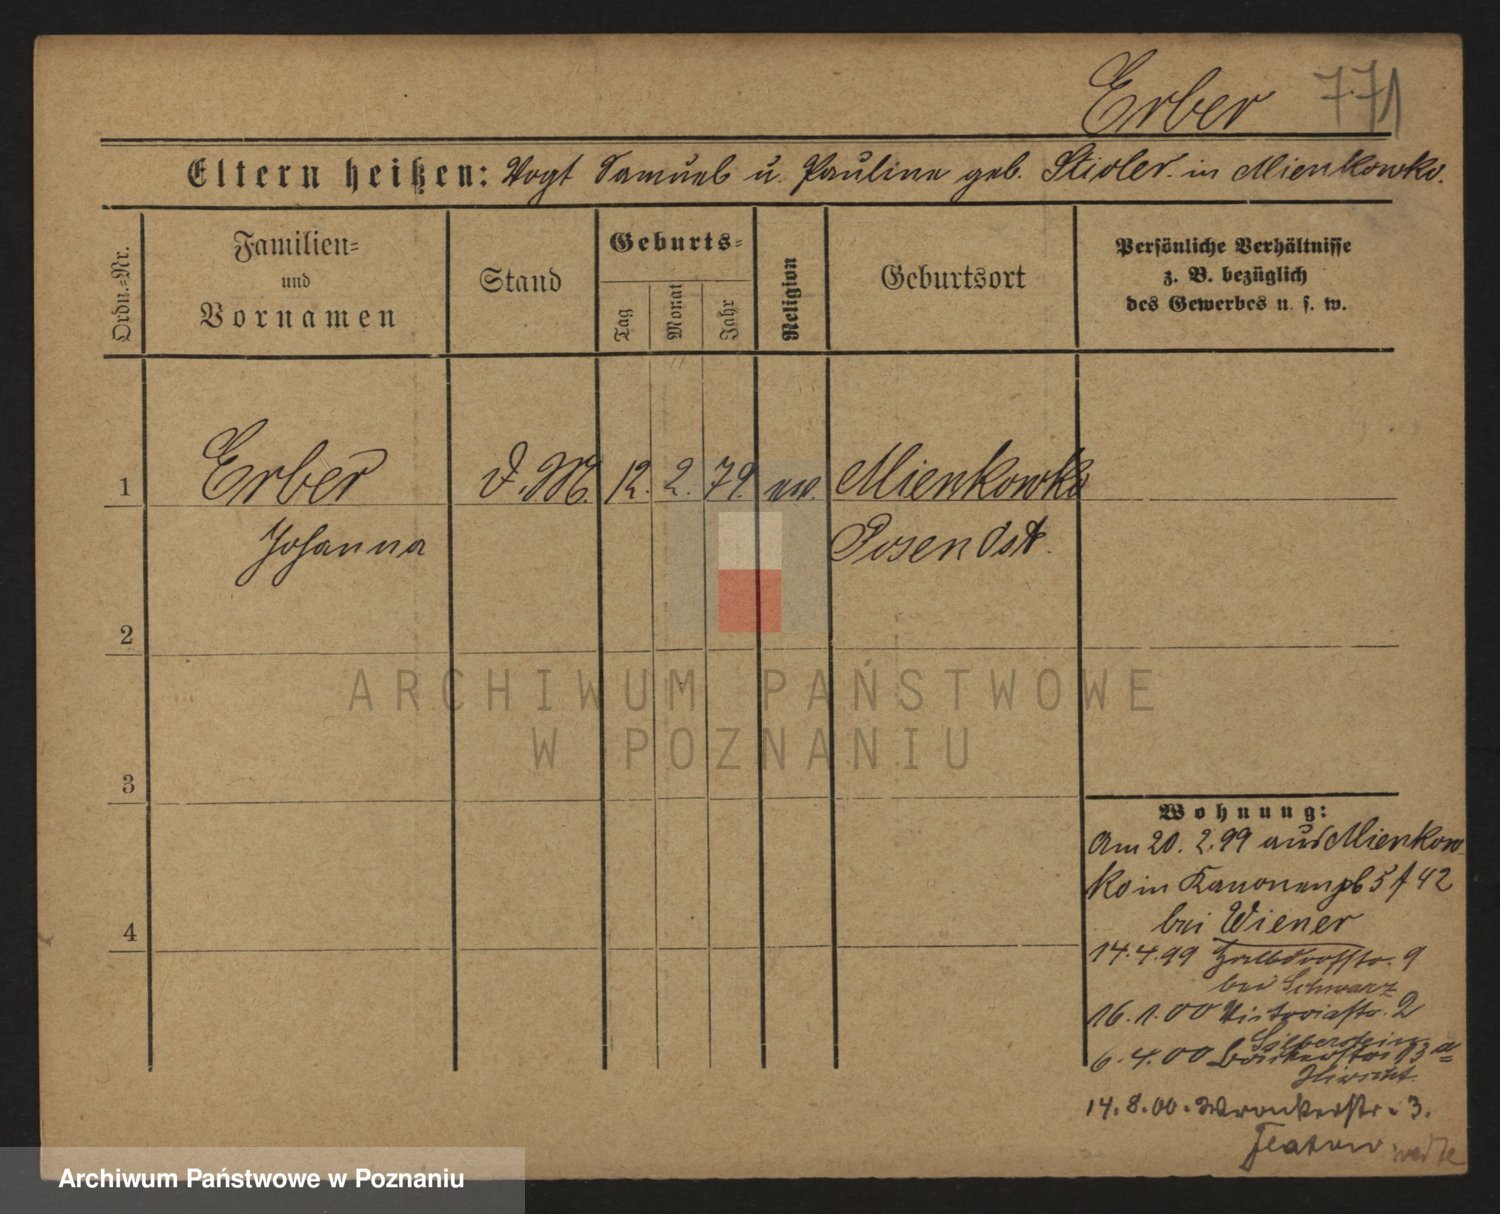 Erber 771
Eltern heißen: Vogt Samuel u. Pauline geb. Stioler. in Mienkowko.
Ordn.-Nr.
Familien-
und
Vornamen
Stand
Geburts-
Tag
Monat
Jahr
Religion
Geburtsort
Persönliche Verhältnisse
z. B. bezüglich
des Gewerbes u. s. w.
1 Erber D.M. 12. 2. 79. ev. Mienkowko
Johanna Posen Ost.
2
3
4
Wohnung:
Am 20. 2. 99 aus Mienkow-
ko in Kanonenpl 5 f 42
bei Wiener
14.4.99 Halbdorfstr. 9
bei Schwarz
16.1.00 Victoriastr. 2
Silberstein
6.4.00 Bäckerstr 13 a
14.8.00. Wronkerstr. 3.
ARCHIWUM PAŃSTWOWE
W POZNANIU
Archiwum Państwowe w Poznaniu